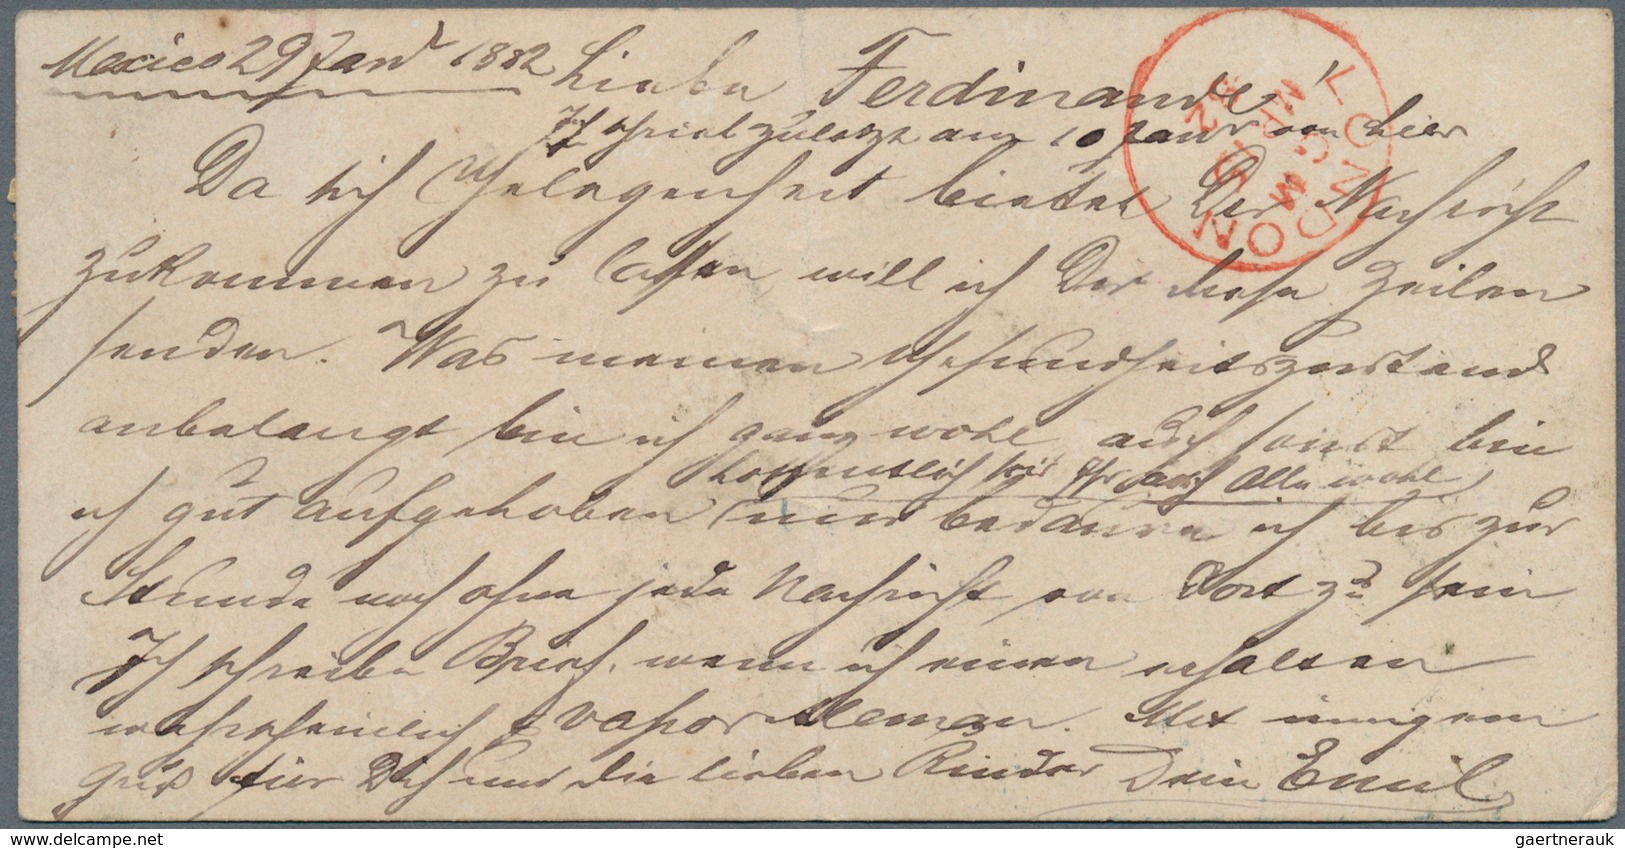 Mexico 29 Janr 1882 Liebe Ferdinande!
Ich schrieb zuletzt am 10 Janr von hier
Da sich Gelegenheit bietet Dir Nachricht
zukommen zu lassen, will ich Dir diese Zeilen
senden. Was meinen Gesundheitszustand
anbelangt bin ich ganz wohl auch sonst bin
hoffentlich seid Ihr auch Alle wohl
ich gut aufgehoben nur bedaure ich bis zur
Stunde noch ohne jede Nachricht von Dort zu sein
Ich schreibe Brief, wenn ich einen erhalten
wahrscheinlich p vapor Aleman. Mit innigem
Gruß für Dich und die lieben Kinder Dein Emil
LONDON
MR
82
gaertnerauk